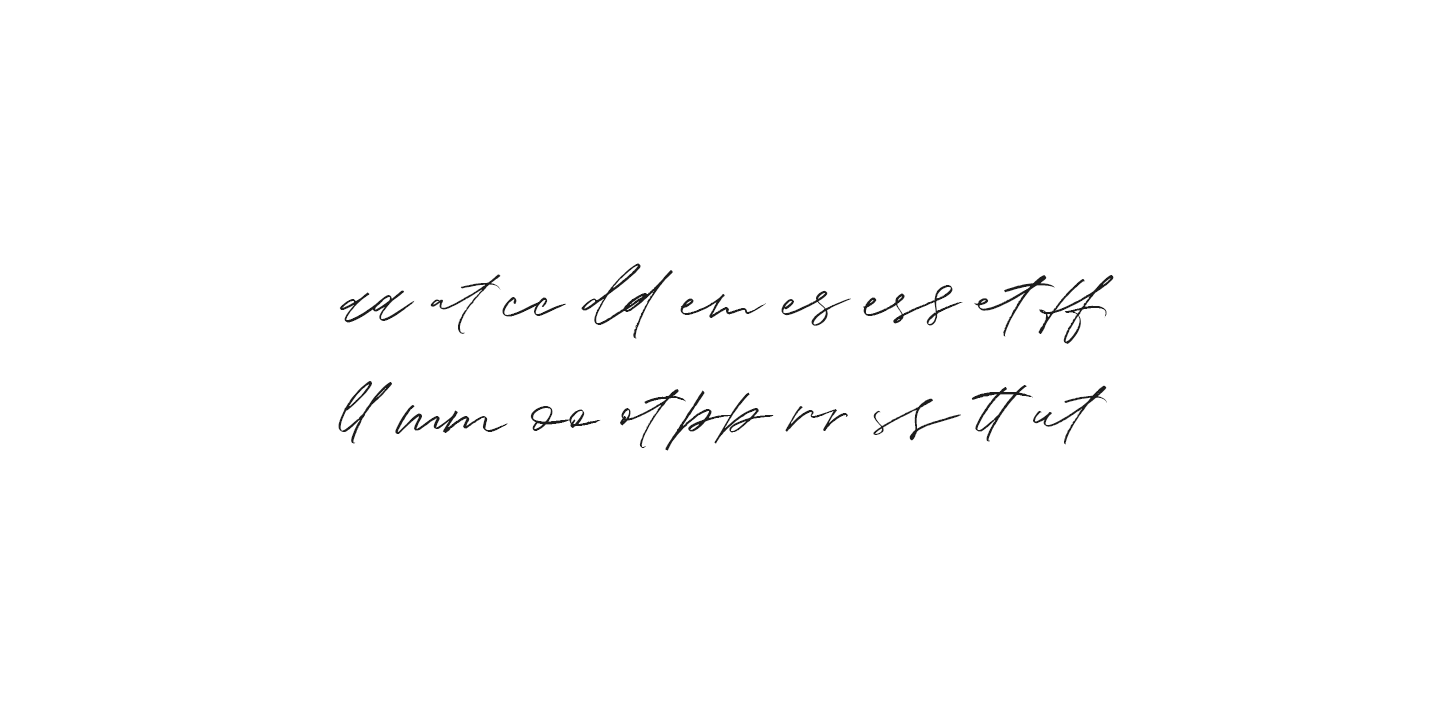 aa at cc dd em es ess et ff
ll mm oo ot pp rr ss tt ut